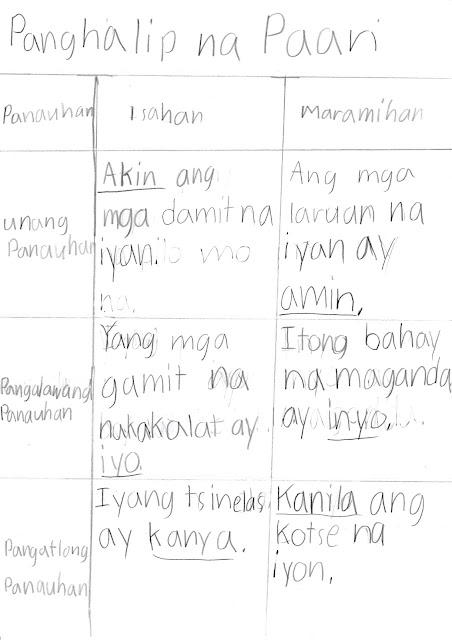 Panghalip na Paari
Panauhan
Isahan
Maramihan
unang
Panauhan
Akin ang
mga damit na
iyan.
Ang mga
laruan na
iyan ay
amin.
Pangalawang
Panauhan
Yang mga
gamit na
nakakalat ay
iyo.
Itong bahay
na maganda
ay inyo.
Pangatlong
Panauhan
Iyang tsinelas
ay kanya.
Kanila ang
kotse na
iyon.